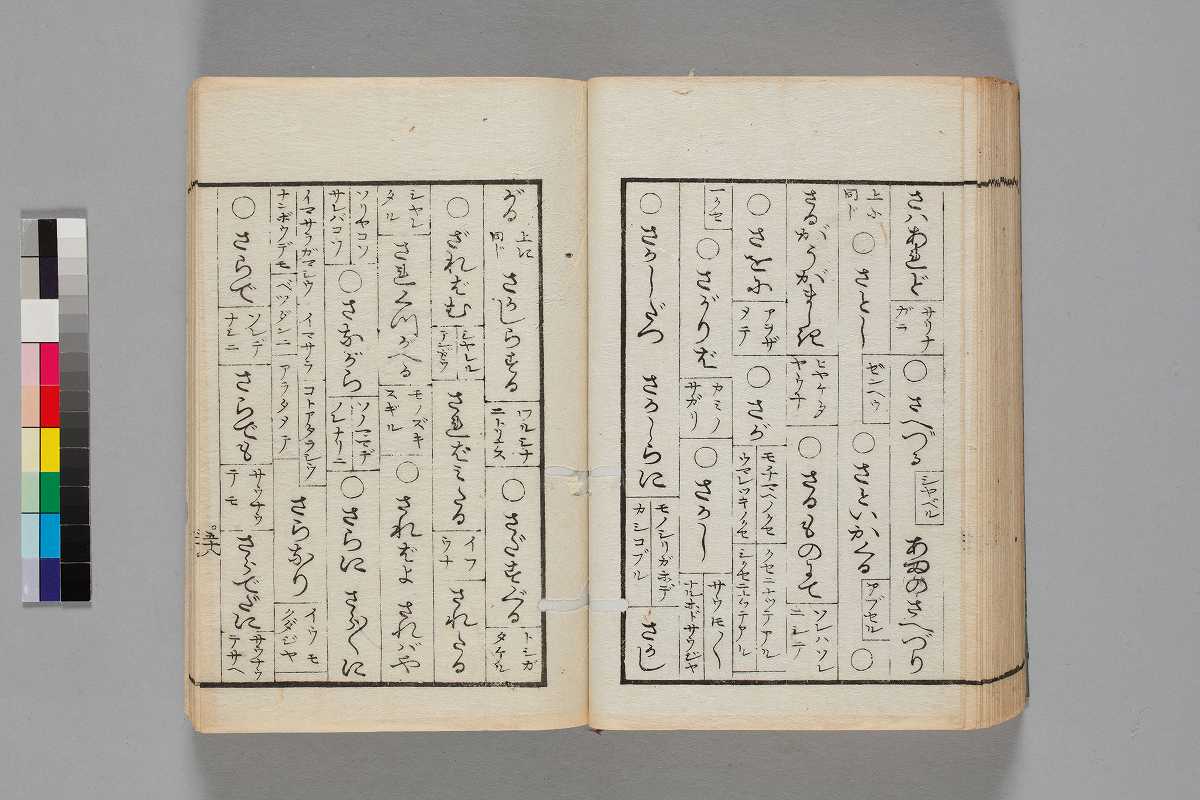 さハあれど サリナガラ ○さへづる シャベル あまのさへづり
上ニ同ド ○さとし ゼンヘウ ○さといかくる アブセル ○
さるがうがましき ヒヤウケタヤウナ ○さるものにて ソレハソレニシテ
○さをに アラザメテ ○さが モチマヘノクセ ウマレツキノクセ クセニナッテアル シクセニナッテアル
一クセ ○さがりば カミノサガリ ○さかし サウモ〱 ナルホドサウジャ
○さかしだつ さかしらに モノシリガホデ カシコブル さかし
がる 上に同ド さかしらする ワルヒナニトリナス ○さだすぐる トシガタケル
○ざればむ シャレル さればみたる イフウナ されたる
シャレタル されくつがへる モノズキスギル ○さればよ さればや
ソリヤコソ サレバコソ ○さながら ソノママデ ソレナリニ ○さらに さら〱に
イマサラガマシウ イマサラ コトアタラシウ ナンボウデモ ベツダンニ アラタメテ さらなり イウモクダジヤ
○さらで ソレデナシニ さらでも サウナウテモ さらでだに サウナウテサヘ